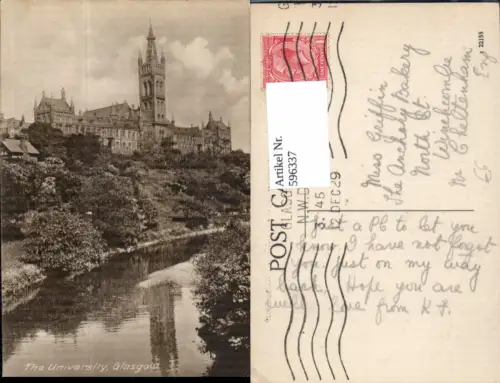 The University, Glasgow
POST CA
S 22155
Artikel Nr.
596337
GLASG
N.W.D
3.45
DEC 29
Miss Griffin
The Anchory Bakery
North St
Winchcombe
Nr Cheltenham
Eng
Just a PC to let you
know I have not forgot
you just on my way
back. Hope you are
well love from K.P.